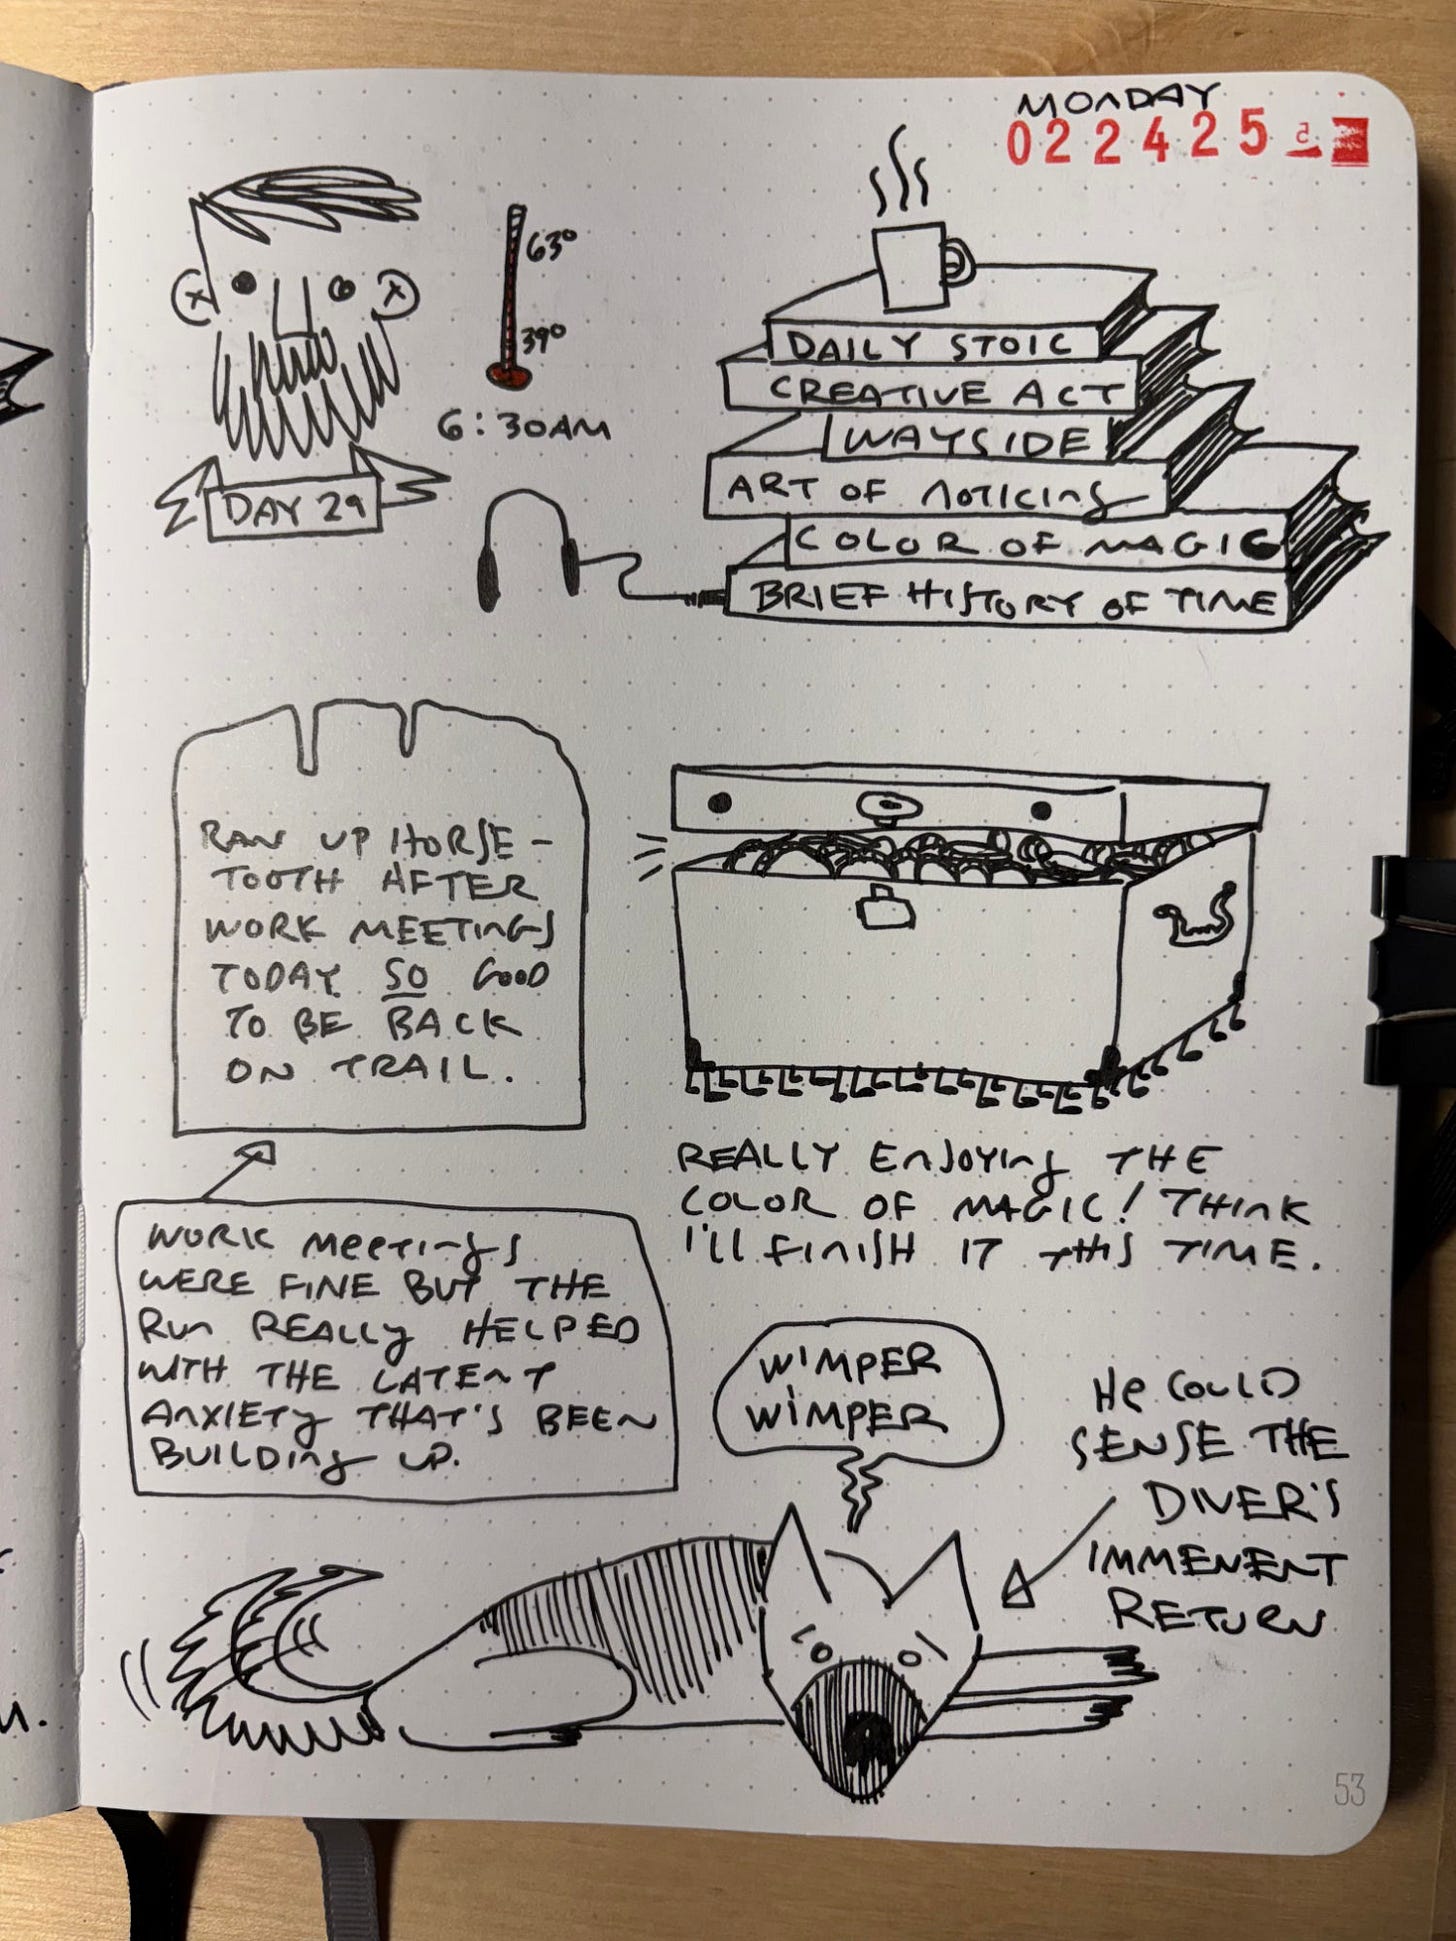 MONDAY
022425
63°
39°
6:30AM
DAY 29
DAILY STOIC
CREATIVE ACT
WAYSIDE
ART OF NOTICING
COLOR OF MAGIC
BRIEF HISTORY OF TIME
RAN UP HORSE-
TOOTH AFTER
WORK MEETINGS
TODAY SO GOOD
TO BE BACK
ON TRAIL.
WORK MEETINGS
WERE FINE BUT THE
RUN REALLY HELPED
WITH THE LATENT
ANXIETY THAT'S BEEN
BUILDING UP.
REALLY ENJOYING THE
COLOR OF MAGIC! THINK
I'LL FINISH IT THIS TIME.
WIMPER
WIMPER
HE COULD
SENSE THE
DIVER'S
IMMENENT
RETURN
53